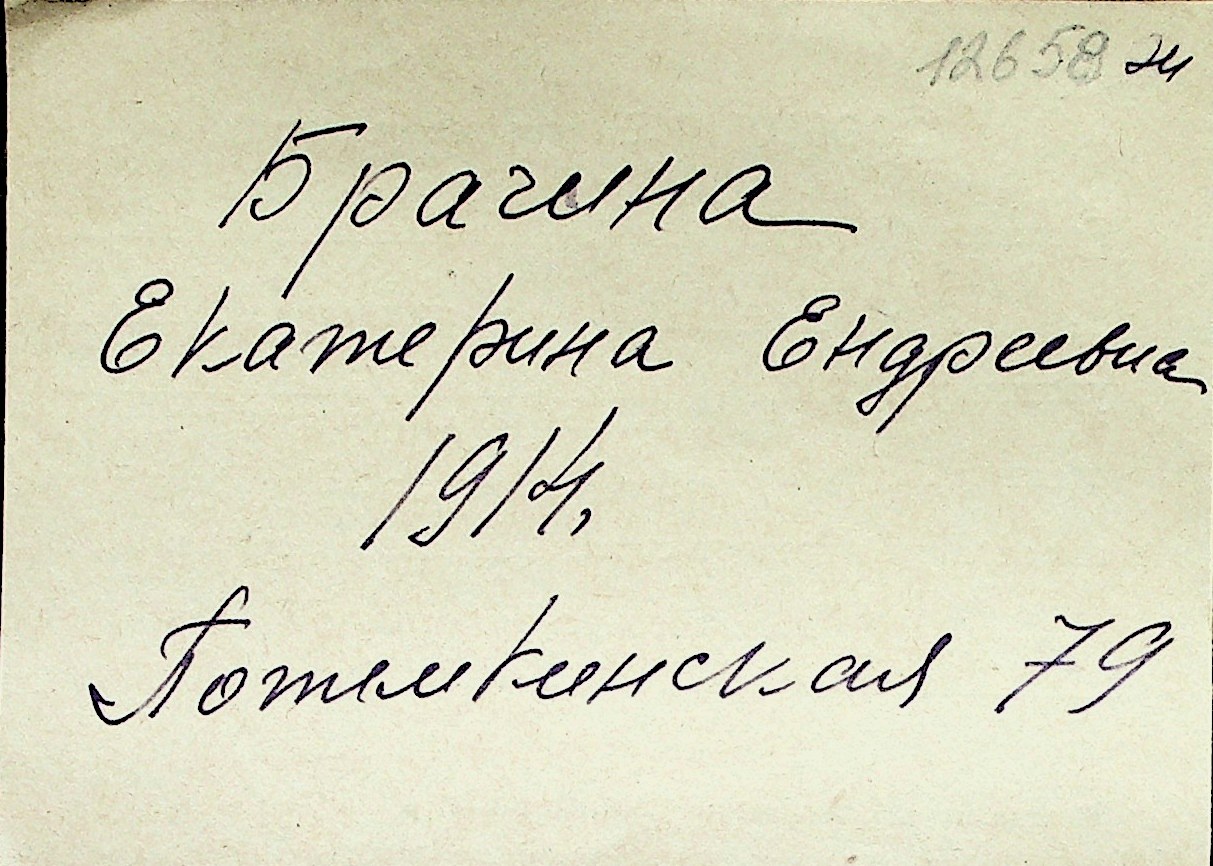 12658 ж
Брагина
Екатерина Ендреевна
1914,
Потемкинская 79